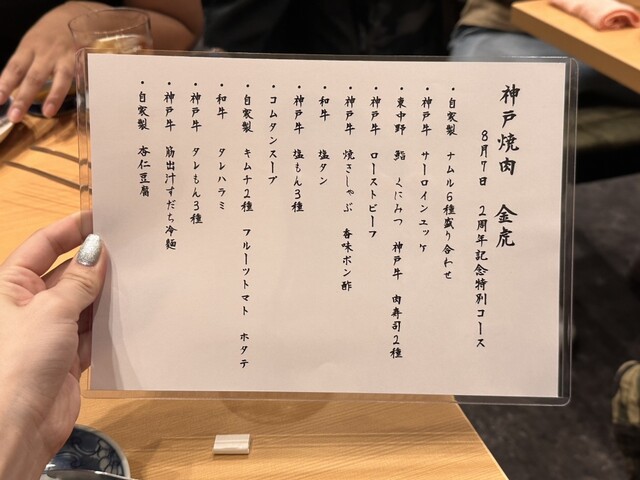 神戸焼肉 金虎
8月7日 2周年記念特別コース
・自家製 ナムル6種盛り合わせ
・神戸牛 サーロインユッケ
・東中野 鮨 くにみつ 神戸牛 肉寿司2種
・神戸牛 ローストビーフ
・神戸牛 焼きしゃぶ 香味ポン酢
・和牛 塩タン
・神戸牛 塩もん3種
・コムタンスープ
・自家製 キムチ2種 フルーツトマト ホタテ
・和牛 タレハラミ
・神戸牛 タレもん3種
・神戸牛 筋出汁すだち冷麺
・自家製 杏仁豆腐